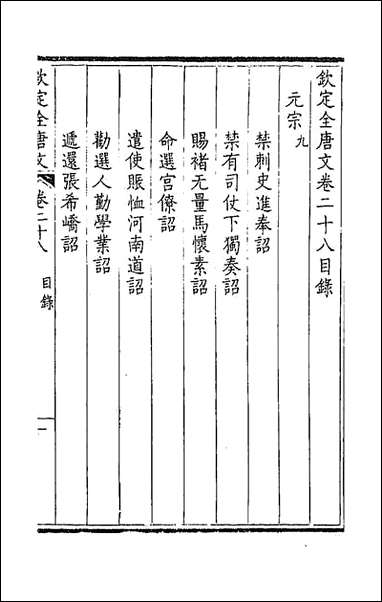 欽定全唐文卷二十八目錄
元宗九
禁刺史進奉詔
禁有司仗下獨奏詔
賜褚无量馬懷素詔
命選宮僚詔
遣使賑恤河南道詔
勸選人勤學業詔
遞還張希嶠詔
欽定全唐文 卷二十八 目錄 一